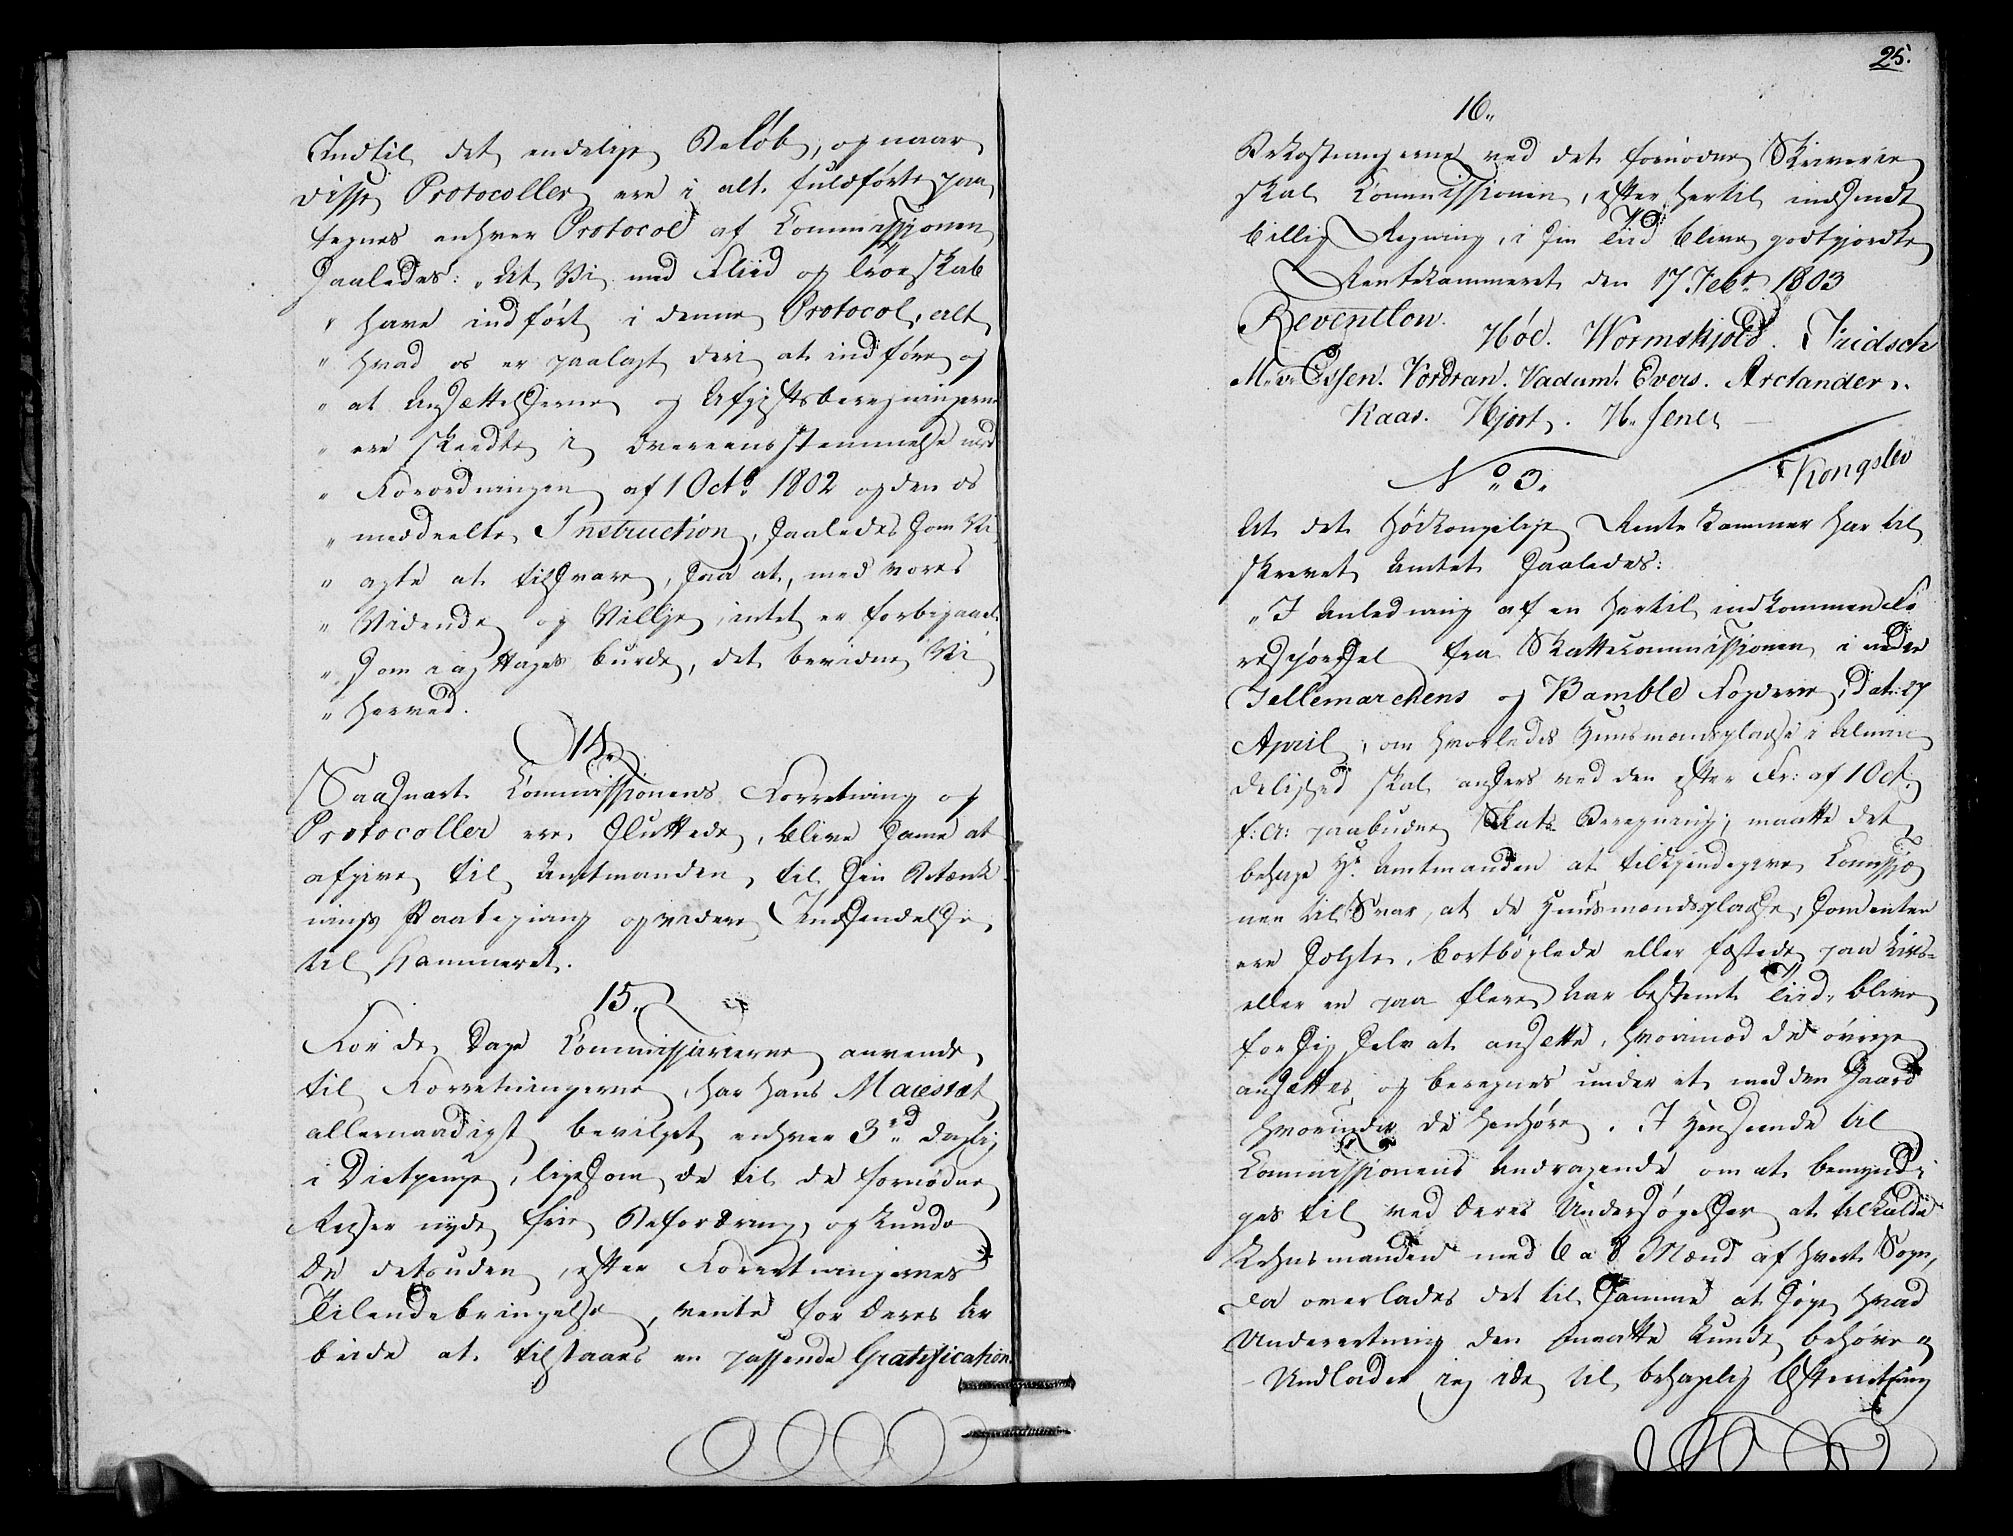 Indtil det endelige Beløb, og naar
disse Protocoller ere i alt fuldførte paa
tegnes enhver Protocol af Commissionen
saaledes: „At Vi med Fliid og Troeskab
„ have indført i denne Protocol, alt
„ hvad os er paalagt deri at indføre og
„ at Ansættelserne og Afgiftsberegningerne
„ ere skeedte i Overeensstemmelse med
„ Forordningen af 1 Octb. 1802 og den os
„ meddeelte Instruction, saaledes som Vi
„ agte at tilsvare, saa at, med vores
„ Vidende og Villje, intet er forbigaaet
„ som iagttages burde, det bevidne Vi
„ herved.
14.
Saasnart Commissionens Forretning og
Protocoller ere sluttede, blive samme at
afgive til Amtmanden, til sin Betænk
nings Paategning og videre Indsendelse
til Kammeret.
15.
For de Dage Commissairerne anvende
til Forretningerne, har Hans Maiestæt
allernaadigst bevilget enhver 3 rd daglig
i Dietpenge, ligesom de til de fornødne
Reiser nyde frie Befordring, og kunde
de desuden, efter Forretningernes
Tilendebringelse, vente for deres Ar
beide at tilstaaes en passende Gratification.
25.
16.
Bekostningerne ved det fornødne Skriverie
skal Commissionen, efter hertil indsendt
billig Regning, i sin Tiid blive godtgjordte
Rentekammeret den 17 Febr. 1803
Reventlow.
Höe. Wormskjold. Fridsch
M. v. Essen. Vordran. Vadum. Evers. Arctander.
Kaas. Hjort. H. Jener
No 3. Kongslev
At det Höikongelige Rente Kammer har til
skrevet Amtet saaledes:
„I Anledning af en hertil indkommen Fo
respörgsel fra Skattecommissionen i neder
Tellemarchens og Bamble Fogderie, dat: 27
April, om hvorledes Huusmandspladse i Almin
delighed skal ansees ved den efter Fr: af 1 Oct.
f: A: paabudne Skats Beregning, maatte det
behage Hr Amtmanden at tilkjendegive Commissio
nen til Svar, at de Huusmandspladse, som enten
ere solgte, bortbøxlede eller fæstede paa Livs-
eller en paa flere Aar bestemt Tiid, blive
for sig selv at ansætte, hvorimod de øvrige
ansættes og beregnes under et med den Gaard
hvorunder de henhøre. I Henseende til
Commissionens Andragende, om at bemyndi
ges til ved deres Undersøgelser at tilkalde
Lehnsmanden med 6 a 8 Mænd af hvert Sogn,
da overlades det til samme at søge hvad
Underretning den maatte kunde behøve
Undlader jeg ikke til behagelig Efterretning